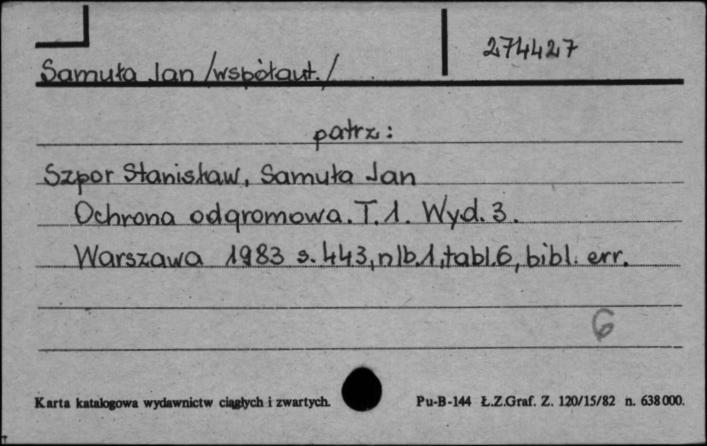 274427
Samuła Jan /współaut./
patrz:
Szpor Stanisław, Samuła Jan
Ochrona odgromowa. T.1. Wyd. 3.
Warszawa 1983 s. 443, nlb.1, tabl.6, bibl. err.
6
Karta katalogowa wydawnictw ciągłych i zwartych. Pu-B-144 Ł.Z.Graf. Z. 120/15/82 n. 638 000.